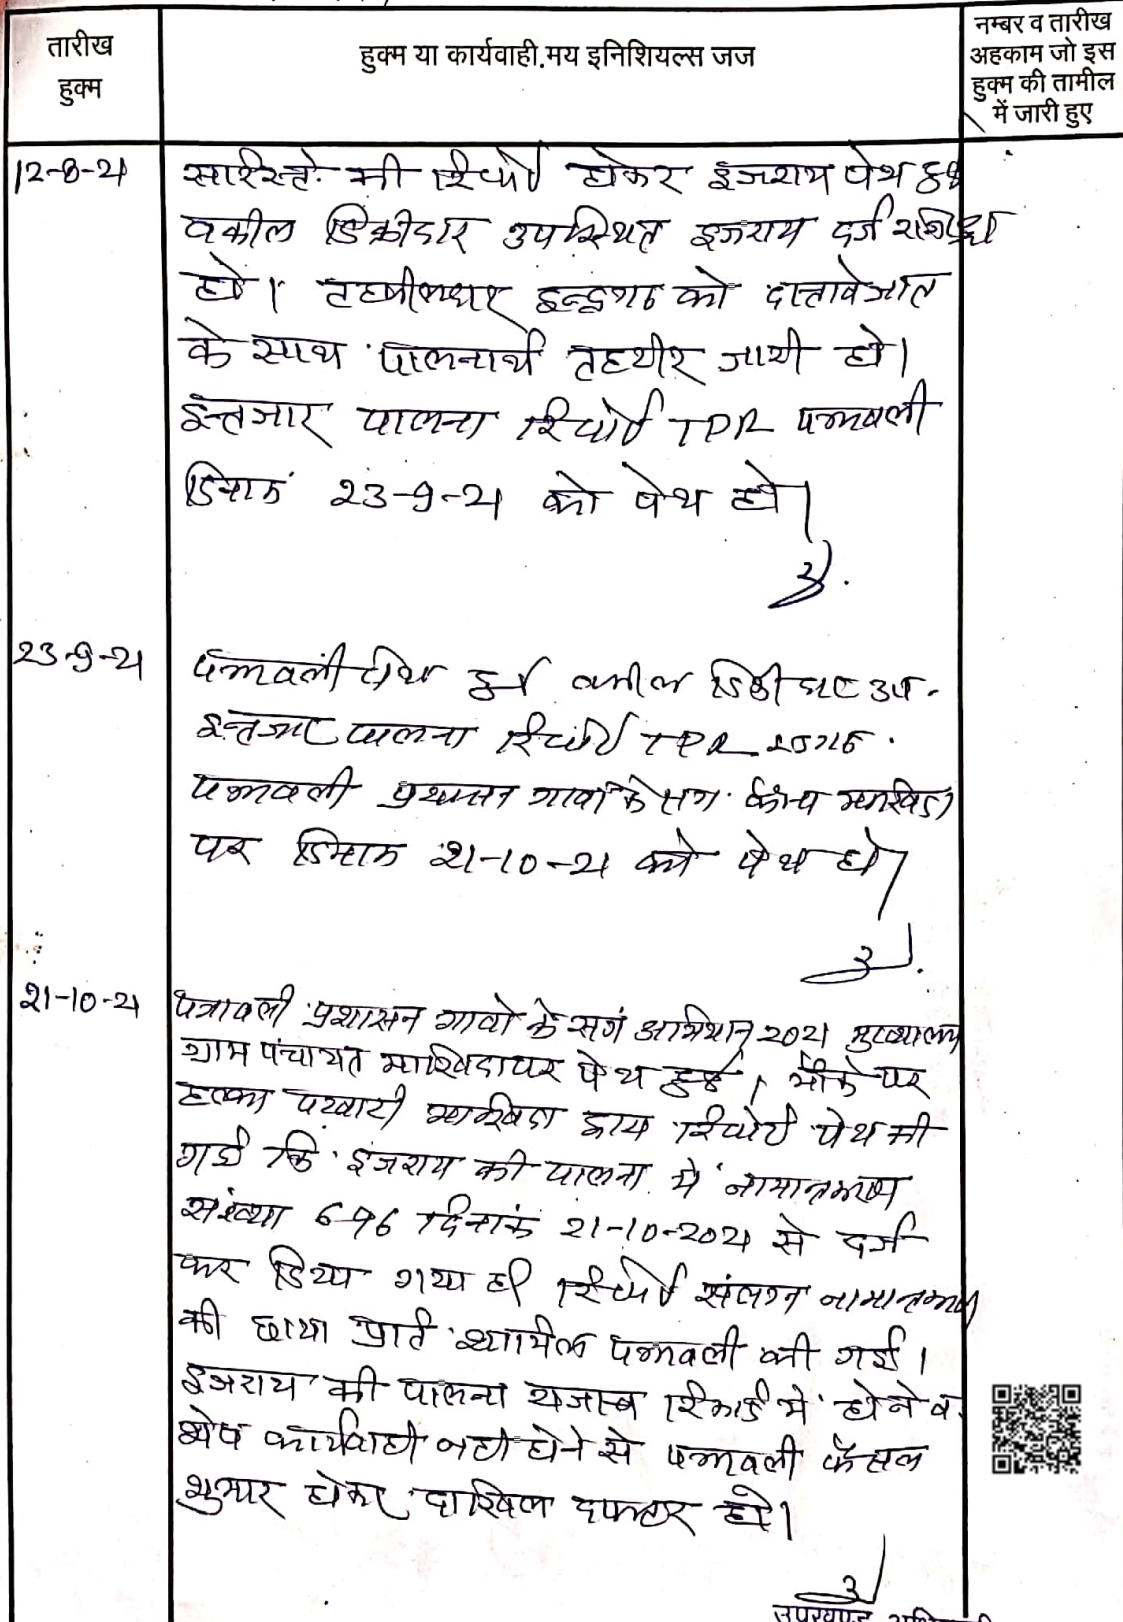 तारीख
हुक्म
हुक्म या कार्यवाही.मय इनिशियल्स जज
नम्बर व तारीख
अहकाम जो इस
हुक्म की तामील
में जारी हुए
12-8-21
की रिपोर्ट होकर इजराय पेश हुई
वकील डिक्रीदार उपस्थित इजराय दर्ज रजिस्टर
हो। तहसीलदार इन्द्रगढ को दस्तावेजात
के साथ पालनार्थ तहरीर जारी हो।
इन्तजार पालना रिपोर्ट TDR पत्रावली
दिनांक 23-9-21 को पेश हो।
23-9-21
पत्रावली पेश हुई वकील डिक्रीदार उप.
इन्तजार पालना रिपोर्ट TDR
पत्रावली प्रशासन गावों के सग कैम्प माखिदा
पर दिनांक 21-10-21 को पेश हो।
21-10-21
पत्रावली प्रशासन गावो के सगं अभियान 2021 मुख्यालय
ग्राम पंचायत माखिदा पर पेश हुई। मौके पर
हल्का पटवारी माखिदा द्वारा रिपोर्ट पेश की
गई कि इजराय की पालना में नामान्तकरण
संख्या 696 दिनांक 21-10-2021 से दर्ज
कर दिया गया है। रिपोर्ट संलग्न नामान्तकरण
की छाया प्रति शामिल पत्रावली की गई।
इजराय की पालना राजस्व रिकार्ड में होने व
शेष कार्यवाही नही होने से पत्रावली फैसल
शुमार होकर दाखिल दफ्तर हो।
उपखण्ड